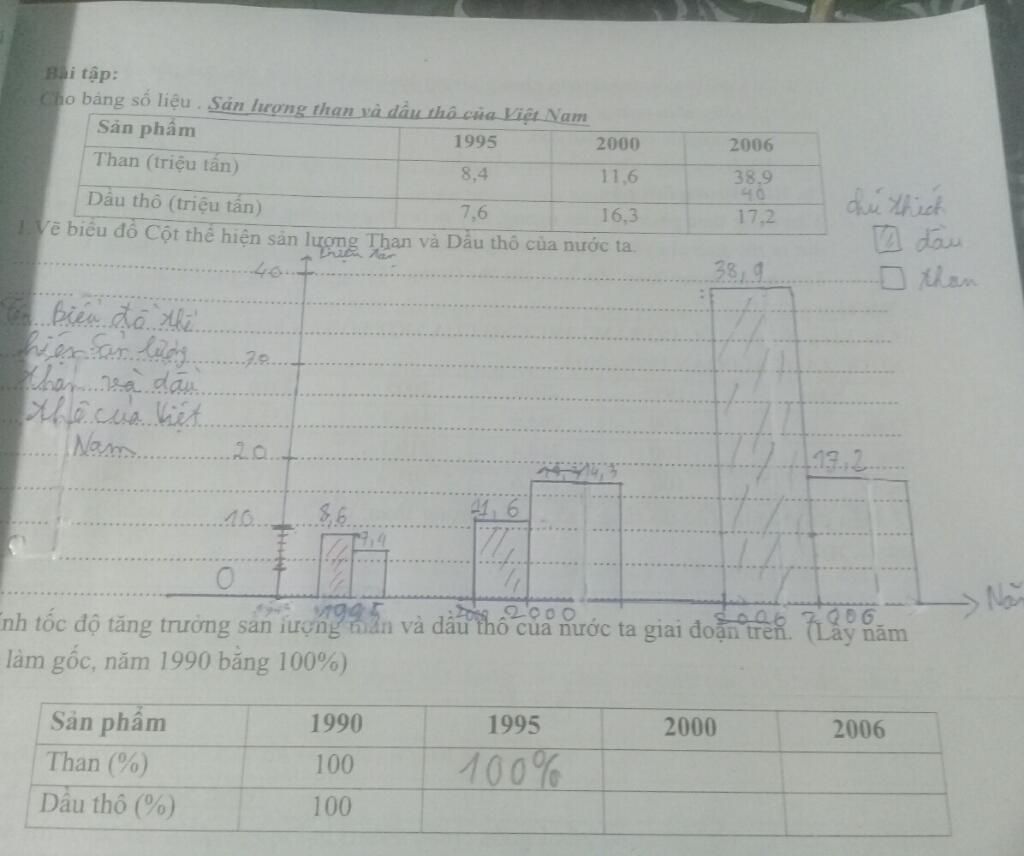 Bài tập:
Cho bảng số liệu . Sản lượng than và dầu thô của Việt Nam
Sản phẩm 1995 2000 2006
Than (triệu tấn) 8,4 11,6 38,9
40
Dầu thô (triệu tấn) 7,6 16,3 17,2
chú thích
1.Vẽ biểu đồ Cột thể hiện sản lượng Than và Dầu thô của nước ta.
dầu
than
40 38,9
Tên biểu đồ thể
hiện sản lượng
than và dầu
thô của Việt
Nam
20 17,2
14,3
10 8,6 7,4 11,6
0
1995 2000 2006 2006 Nă
ính tốc độ tăng trưởng sản lượng than và dầu thô của nước ta giai đoạn trên. (Lấy năm
làm gốc, năm 1990 bằng 100%)
Sản phẩm 1990 1995 2000 2006
Than (%) 100 100%
Dầu thô (%) 100